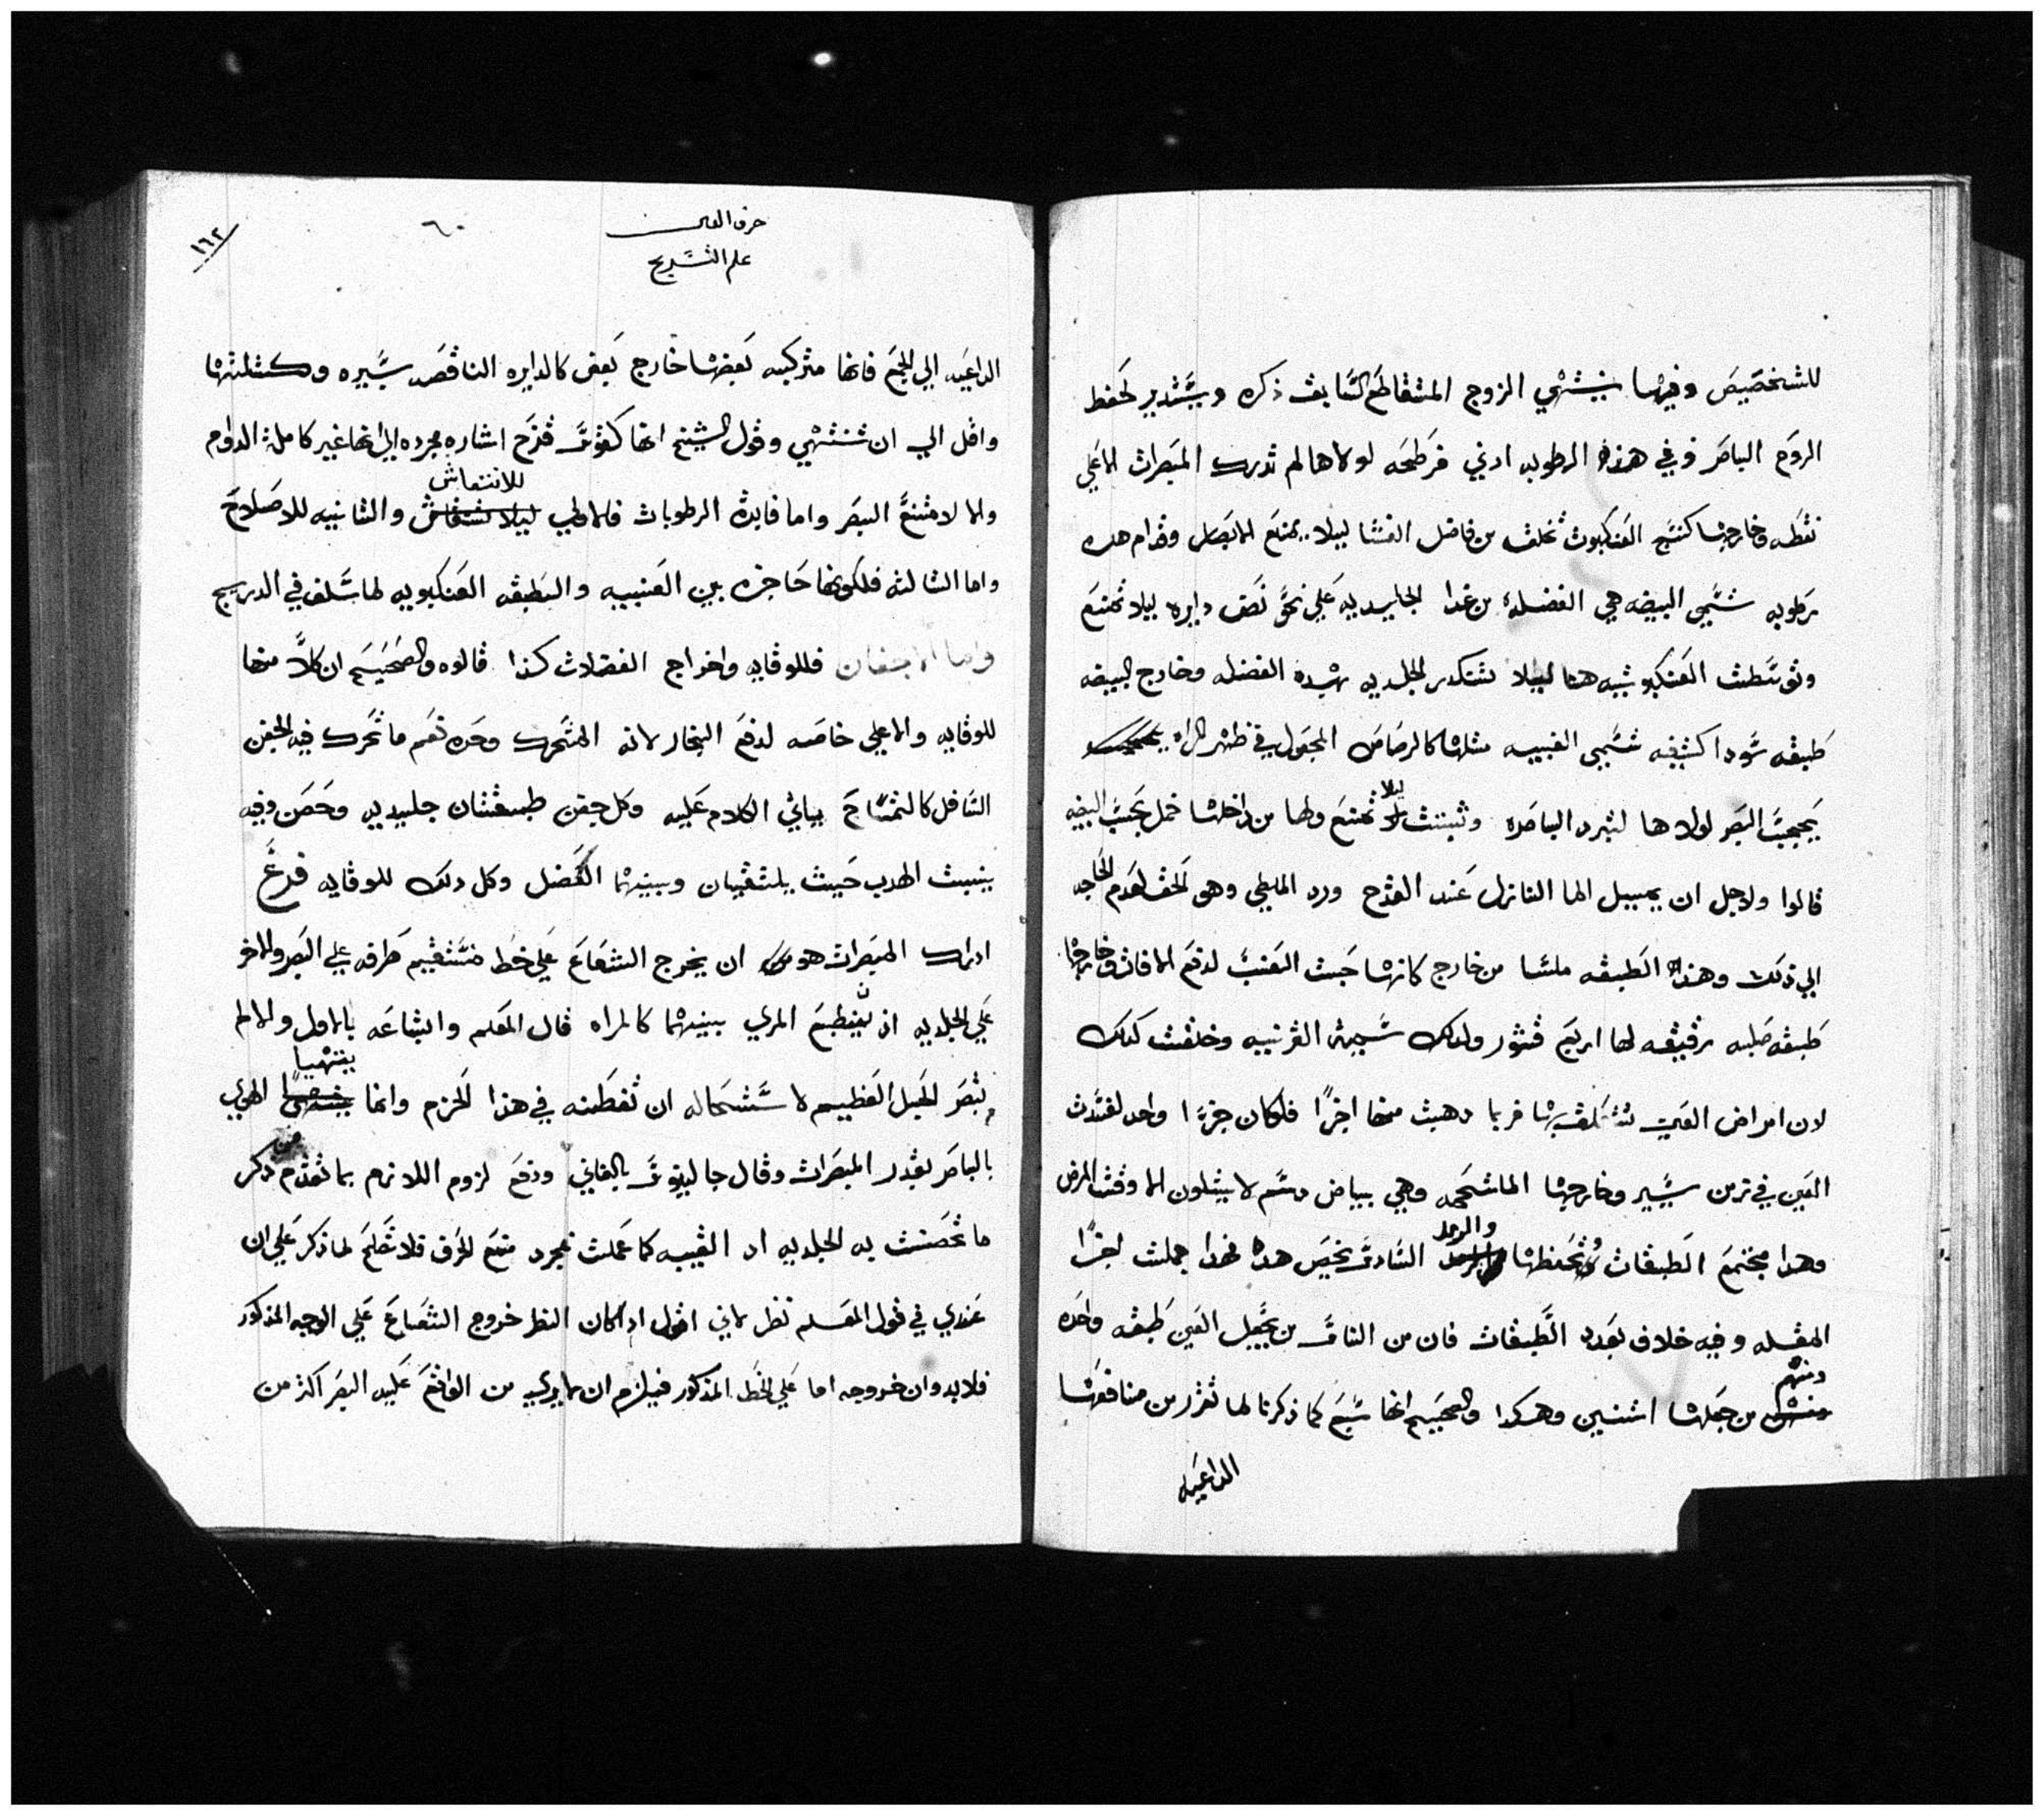 للشخصيص وفيها ينتهي الزوج المتقاطع السابق ذكره ويستدير لحفظ
الروح الباصر وفي هذه الرطوبه ادني فرطحه لولاها لم تدرك المبصرات الاعلي
نقطه وخارجها كنسج العنكبوت تخلف من فاضل الغشا ليلا يمنع الابصار وقدام هده
رطوبه تسمي البيضه هي الفضله من غدا الجليديه علي نحو نصف دايره ليلا تمنع
وتوسطت العنكبوتيه هنا ليلا تتكدر الجلديه بهده الفضله وخارج البيضه
طبقه سودا كثيفه تسمي العنبيه مثلها كالرصاص المجعول في ظهر المراه
يحجب البصر لولاها لتبرد الباصره وثبتت ليلا تمنع ولها من داخلها خمل يحجب البيضه
قالوا ولاجل ان يميل الما النازل عند القدح ورد الملطي وهو الحق لعدم الحاجه
الي ذلك وهذه الطبقه ملسا من خارج كانها حبت العنب لدفع الافات وخارجها
طبقه صلبه رقيقه لها اربع قشور ولدلك سميت القرنيه وخلقت كدلك
لان امراض العين تتعلق بها فربما دهبت منها اجزا فلوكان جزءا واحد لفسدت
العين في زمن يسير وخارجها الملتحمه وهي بياض دسم لا يتلون الا وقت المرض
وهدا مجتمع الطبقات وتحفظها والزوج السادس يخص هده فهدا جملت اجزا
المقله وفيه خلاف بعدد الطبقات فان من الناس من يجعل العين طبقه واحده
ومنهم من جعلها اثنين وهكدا والصحيح انها سبع كما ذكرنا لما تقرر من منافعها
الداعيه
حرف العين
علم التشريح
٦٠
١٦٢
الداعيه الي الحجم فانها متركبه بعضها خارج بعض كالدايره الناقصه يسيره وكمثلثها
واقل الي ان تنتهي وقول الشيخ انها كقوس قزح اشاره مجرده الي انها غير كاملة الدوام
والا لامتنع البصر واما فايدة الرطوبات فالاولي للانتعاش والثانيه للاصلاح
واما الثالثه فلكونها حاجزه بين العنبيه والطبقه العنكبوتيه لما سلف في الدريج
واما الاجفان فللوقايه واخراج الفضلات كذا قالوه والصحيح ان كلاً منها
للوقايه والاعلي خاصه لدفع البخار لانه المتحرك وحده نعم ما تحرك فيه الجفن
السافل كالتمساح يياتي الكلام عليه وكل جفن طبقتان جليديه وحصن وفيه
ينبت الهدب حيث يلتقيان وبينهما العضل وكل دلك للوقايه فرع
ادراك المبصرات هو ان يخرج الشعاع علي خط مستقيم طرفه علي البصر والاخر
علي الجلديه اذ ينطبع المري بينهما كالمراه قال المعلم والشاعه بالاول والا لم
تبصر الجبل العظيم لاستحاله ان تعطينه في هذا الحزم وانما ينتهيا الهوي
بالباصر بقدر المبصرات وقال جالينوس بالثاني ودفع لزوم اللازم بما تقدم من ذكر
ما تحصنت به الجلديه اد القبيبه كما عملت بمجرد منع الخرق فلا تصلح لما ذكر علي ان
عندي في قول المعلم نظر لاني اقول ادا كان النظر خروج الشعاع علي الوجه المذكور
فلابد وان خروجه اما علي الخط المذكور فيلزم ان لا يري من الواقع عليه البصر اكثر من